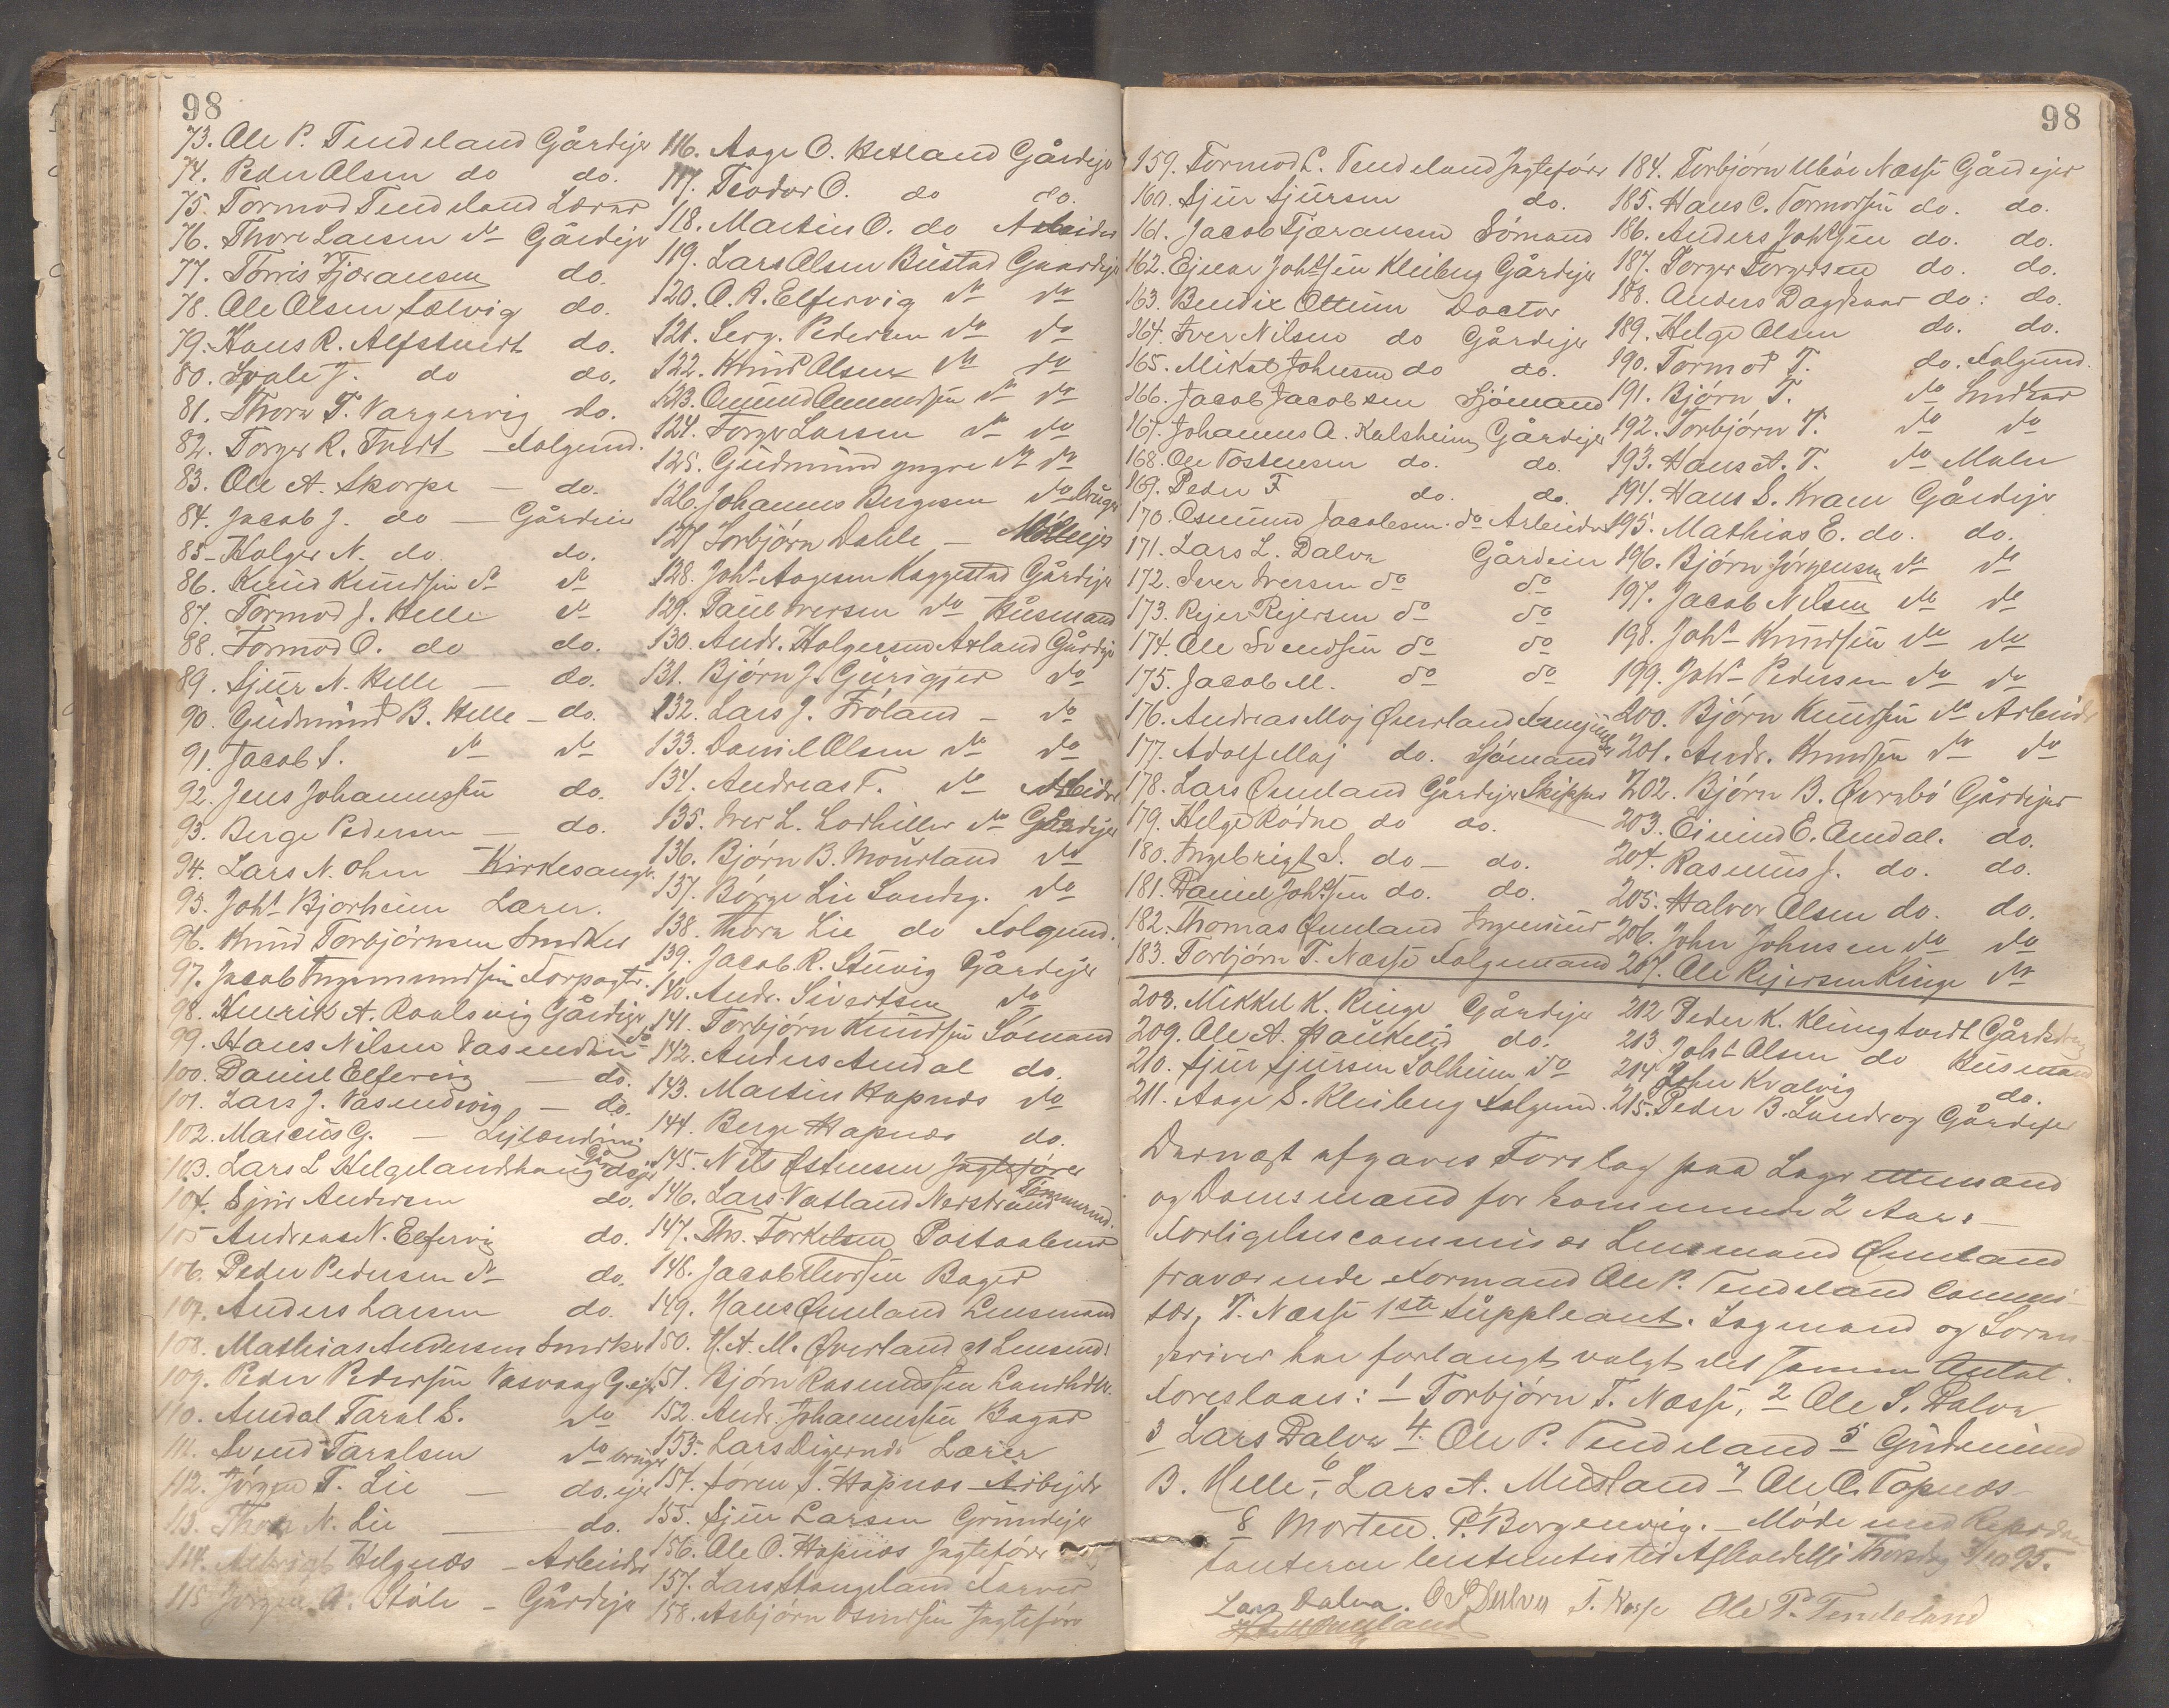 98
73. Ole P. Tendeland Gårdejer
74. Peder Olsen do do.
75. Tormod Tendeland Lærer
76. Thore Larsen do Gårdejer
77. Torris Tjøransen do.
78. Ole Olsen Sælvig do.
79. Hans R. Alfstvedt do.
80. J. do do.
81. Thore T. Vargervig do.
82. Torger R. Tvedt – Folgemd.
83. Ole A. Skorpe – do.
84. Jacob J. do – Gårdeier
85. Holger N. do. do.
86. Knud Knudsen do do
87. Tormod J. Helle do
88. Tormod O. do do.
89. Sjur N. Helle – do.
90. Gudmund B. Helle – do.
91. Jacob S. do do
92. Jens Johannessen do.
93. Berge Pedersen – do.
94. Lars N. Ohm Kirkesangr.
95. Johs Bjorheim Lærer.
96. Knud Torbjørnsen Smdker
97. Jacob Ingemundsen Forpagtr.
98. Henrik A. Roalsvig Gårdejer
99. Hans Nilsen Vasenden do
100. Daniel Elfervig – do.
101. Lars J. Vasendvig – do.
102. Marcus G. – Lejlænding
103. Lars L Helgelandshaug Gårdejer
104. Sjur Andersen do.
105 Andreas N. Elfervig do.
106. Peder Pedersen do do.
107. Anders Larsen do.
108. Mathias Andersen Smdker
109. Peder Pedersen Vasvaag G.ejer
110. Amdal Taral S. do
111. Svend Taralsen do bruger
112. Jørgen T. Lie – do. ejer
113. Thore N. Lie – do.
114. Helgnæs – Arbeider
115 Jørgen A. Støle – Gårdejer
116. Aage O. Hetland Gårdejer
117. Teodor O. do do.
118. Martin O. do Arbeider
119. Lars Olsen Bustad Gaardejer
120. O. R. Elfervig do do
121. Serg. Pedersen do do
122. Knud Olsen do do
123. Omund Omundsen do do
124. Torger Larsen do do
125. Gudmund yngre do do
126. Johannes Bergesen do bruger
127 Torbjørn Dahle – Mølleejer
128. Johs Aagesen Haggestad Gårdejer
129. Paul Iversen do Husmand
130. Andr. Holgersen Axland Gårdejer
131. Bjørn J. Gurigjer do
132. Lars J. Frøland – do
133. Daniel Olsen do do
134. Andreas T. do Arbeider
135. Iver L. Lorhiller do Gårdejer
136. Bjørn B. Mourland do
137. Børge Lie Sandeg. do
138. Thore Lie do Folgemd.
139. Jacob R. Stuvig Gårdejer
140. Andr. Sivertsen do
141. Torbjørn Knudsen Sømand
142. Anders Amdal do.
143. Martin Hapnæs do
144. Berge Hapnæs do.
145. Nils Østensen Jagtefører
146. Lars Vatland Nerstrand Tømmermd.
147. Ths. Torkelsen Postaabner
148. Jacob Thorsen Bager
149. Hans Qvneland Lensmand
150. H. A. M. Øverland
151. Bjørn Rasmussen Landhdlr.
152. Andr. Johannessen Bager
153. Lars Digernes Lærer
154. Søren S. Hapnæs Arbejder
155. Sjur Larsen Grundejer
156. Ole O. Hapnæs Jagtefører
157. Lars Stangeland Farver
158. Asbjørn Osmdsen Jagtefører
98
159. Tormod L. Tendeland Jagtefører
160. Sjur Sjursen do.
161. Jacob Tjæransen Sømand
162. Ejnar Johssen Kleiberg Gårdejer
163. Bendix Ottum Doctor
164. Iver Nilsen do Gårdejer
165. Mikal Johnsen do do.
166. Jacob Jacobsen Sjømand
167. Johannes A. Kalsheim Gårdejer
168. Ole Tostensen do. do.
169. Peder F do. do.
170. Osmund Jacobsen. do Arbeider
171. Lars L. Dalva Gårdeier
172. Iver Iversen do do
173. Rejer Rejersen do do
174. Ole Svendsen do do
175. Jacob M. do do
176. Andreas Maj Øverland
177. Adolf Maj do. Sjømand
178. Lars Qvneland Gårdejer Skipper
179. Helge Rødne do do.
180. Ingebrigt S. do – do.
181. Daniel Johssen do. do.
182. Thomas Qvneland Ingeniør
183. Torbjørn T. Næsse Folgemand
184. Torbjørn Ubøe Næsse Gårdejer
185. Hans C. Tormodsen do. do.
186. Anders Johssen do. do.
187. Torger Torgersen do. do.
188. Anders Dagskaar do: do.
189. Helge Olsen do. do.
190. Tormod T. do. Folgemd.
191. Bjørn T. do Smdker
192. Torbjørn T. do do
193. Hans A. T. do Maler
194. Hans S. Kram Gårdejer
195. Mathias E. do. do.
196. Bjørn Jørgensen do do
197. Jacob Nilsen do do
198. Johs Knudsen do do
199. Johs Pedersen do do
200. Bjørn Knudsen do Arbeider
201. Andr. Knudsen do do
202. Bjørn B. Øvrabø Gårdejer
203. Eivind E. Amdal. do.
204. Rasmus J. do. do.
205. Halvor Olsen do. do.
206. John Johnsen do do
207. Ole Rejersen Ringe do
208. Mikkel K. Ringe Gårdejer
209. Ole A. Haukelid do.
210. Sjur Sjursen Solheim do
211. Aage S. Kleiberg Folgemd.
212 Peder K. Klungtvedt Gårdsdreng
213. Johs Olsen do Husmand
214 John Kvalvig do.
215. Peder B. Sandvog Gårdejer
Dernæst afgaves Forslag paa Lagrettemænd
og Domsmænd for kommende 2 Aar. –
Forligelsescommissær Lensmand Qvneland
fraværende Formand Ole P. Tendeland Commis-
sær, T. Næsse 1ste Suppleant. Lagmand og Soren-
skriver har forlangt valgt det samme Antal.
Foreslaaes: 1 Torbjørn T. Næsse, 2 Ole S. Dalva
3 Lars Dalva 4. Ole P. Tendeland 5 Gudmund
B. Helle, 6 Lars A. Mældland 7 Ole O. Hapnæs
8 Morten P. Borgenvig. – Møde med Repræsen-
tanterne bestemtes til Afholdelse Thorsdag 3/10 95.
Lars Dalva. O S Dalva T. Næsse Ole P. Tendeland